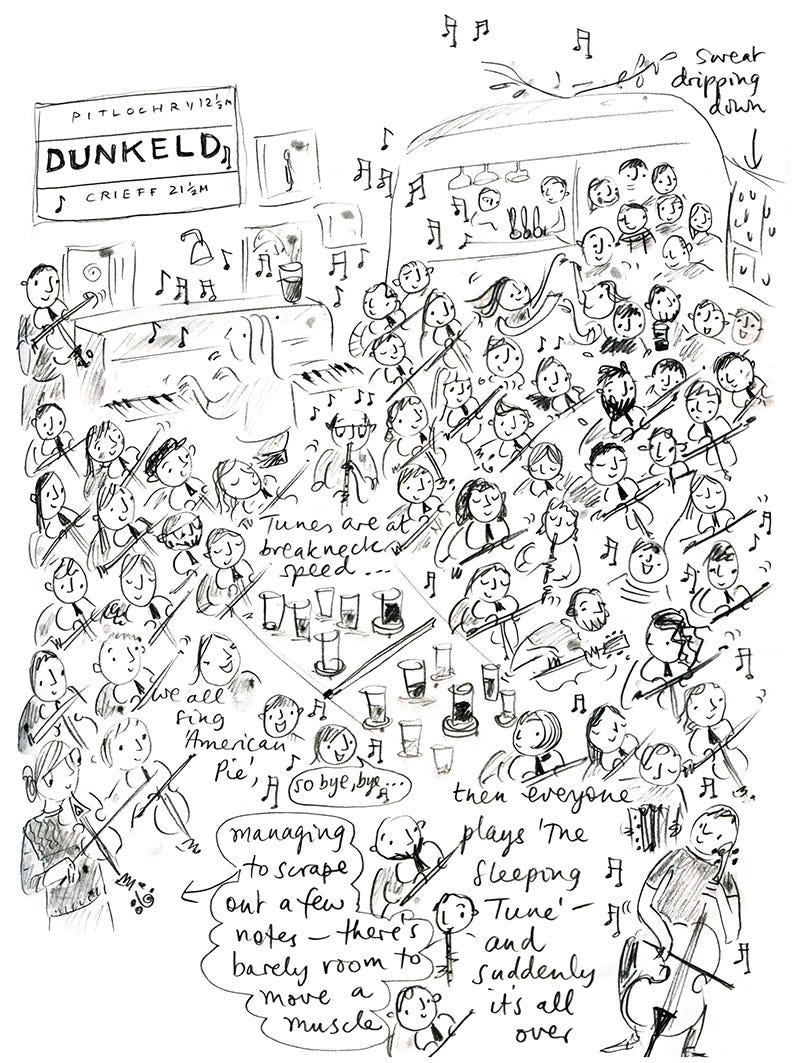 sweat
dripping
down
PITLOCHRY 12½M
DUNKELD
CRIEFF 21½M
Tunes are at
breakneck
speed ...
we all
sing
'American
Pie',
so bye, bye...
then everyone
plays 'The
Sleeping
Tune' –
and
suddenly
it's all
over
managing
to scrape
out a few
notes – there's
barely room to
move a
muscle